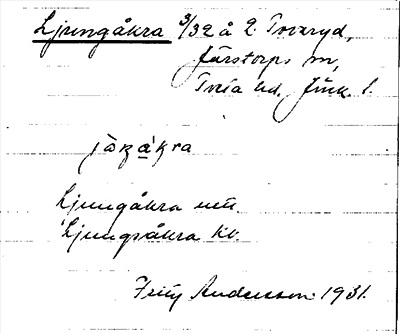 Ljungåkra 3/32 å 2 Tovaryd,
Järstorps sn,
Tveta hd, Jönk. l.
Ljungåkra uttl.
Ljungsåkra kb.
Fritz Andersson 1931.